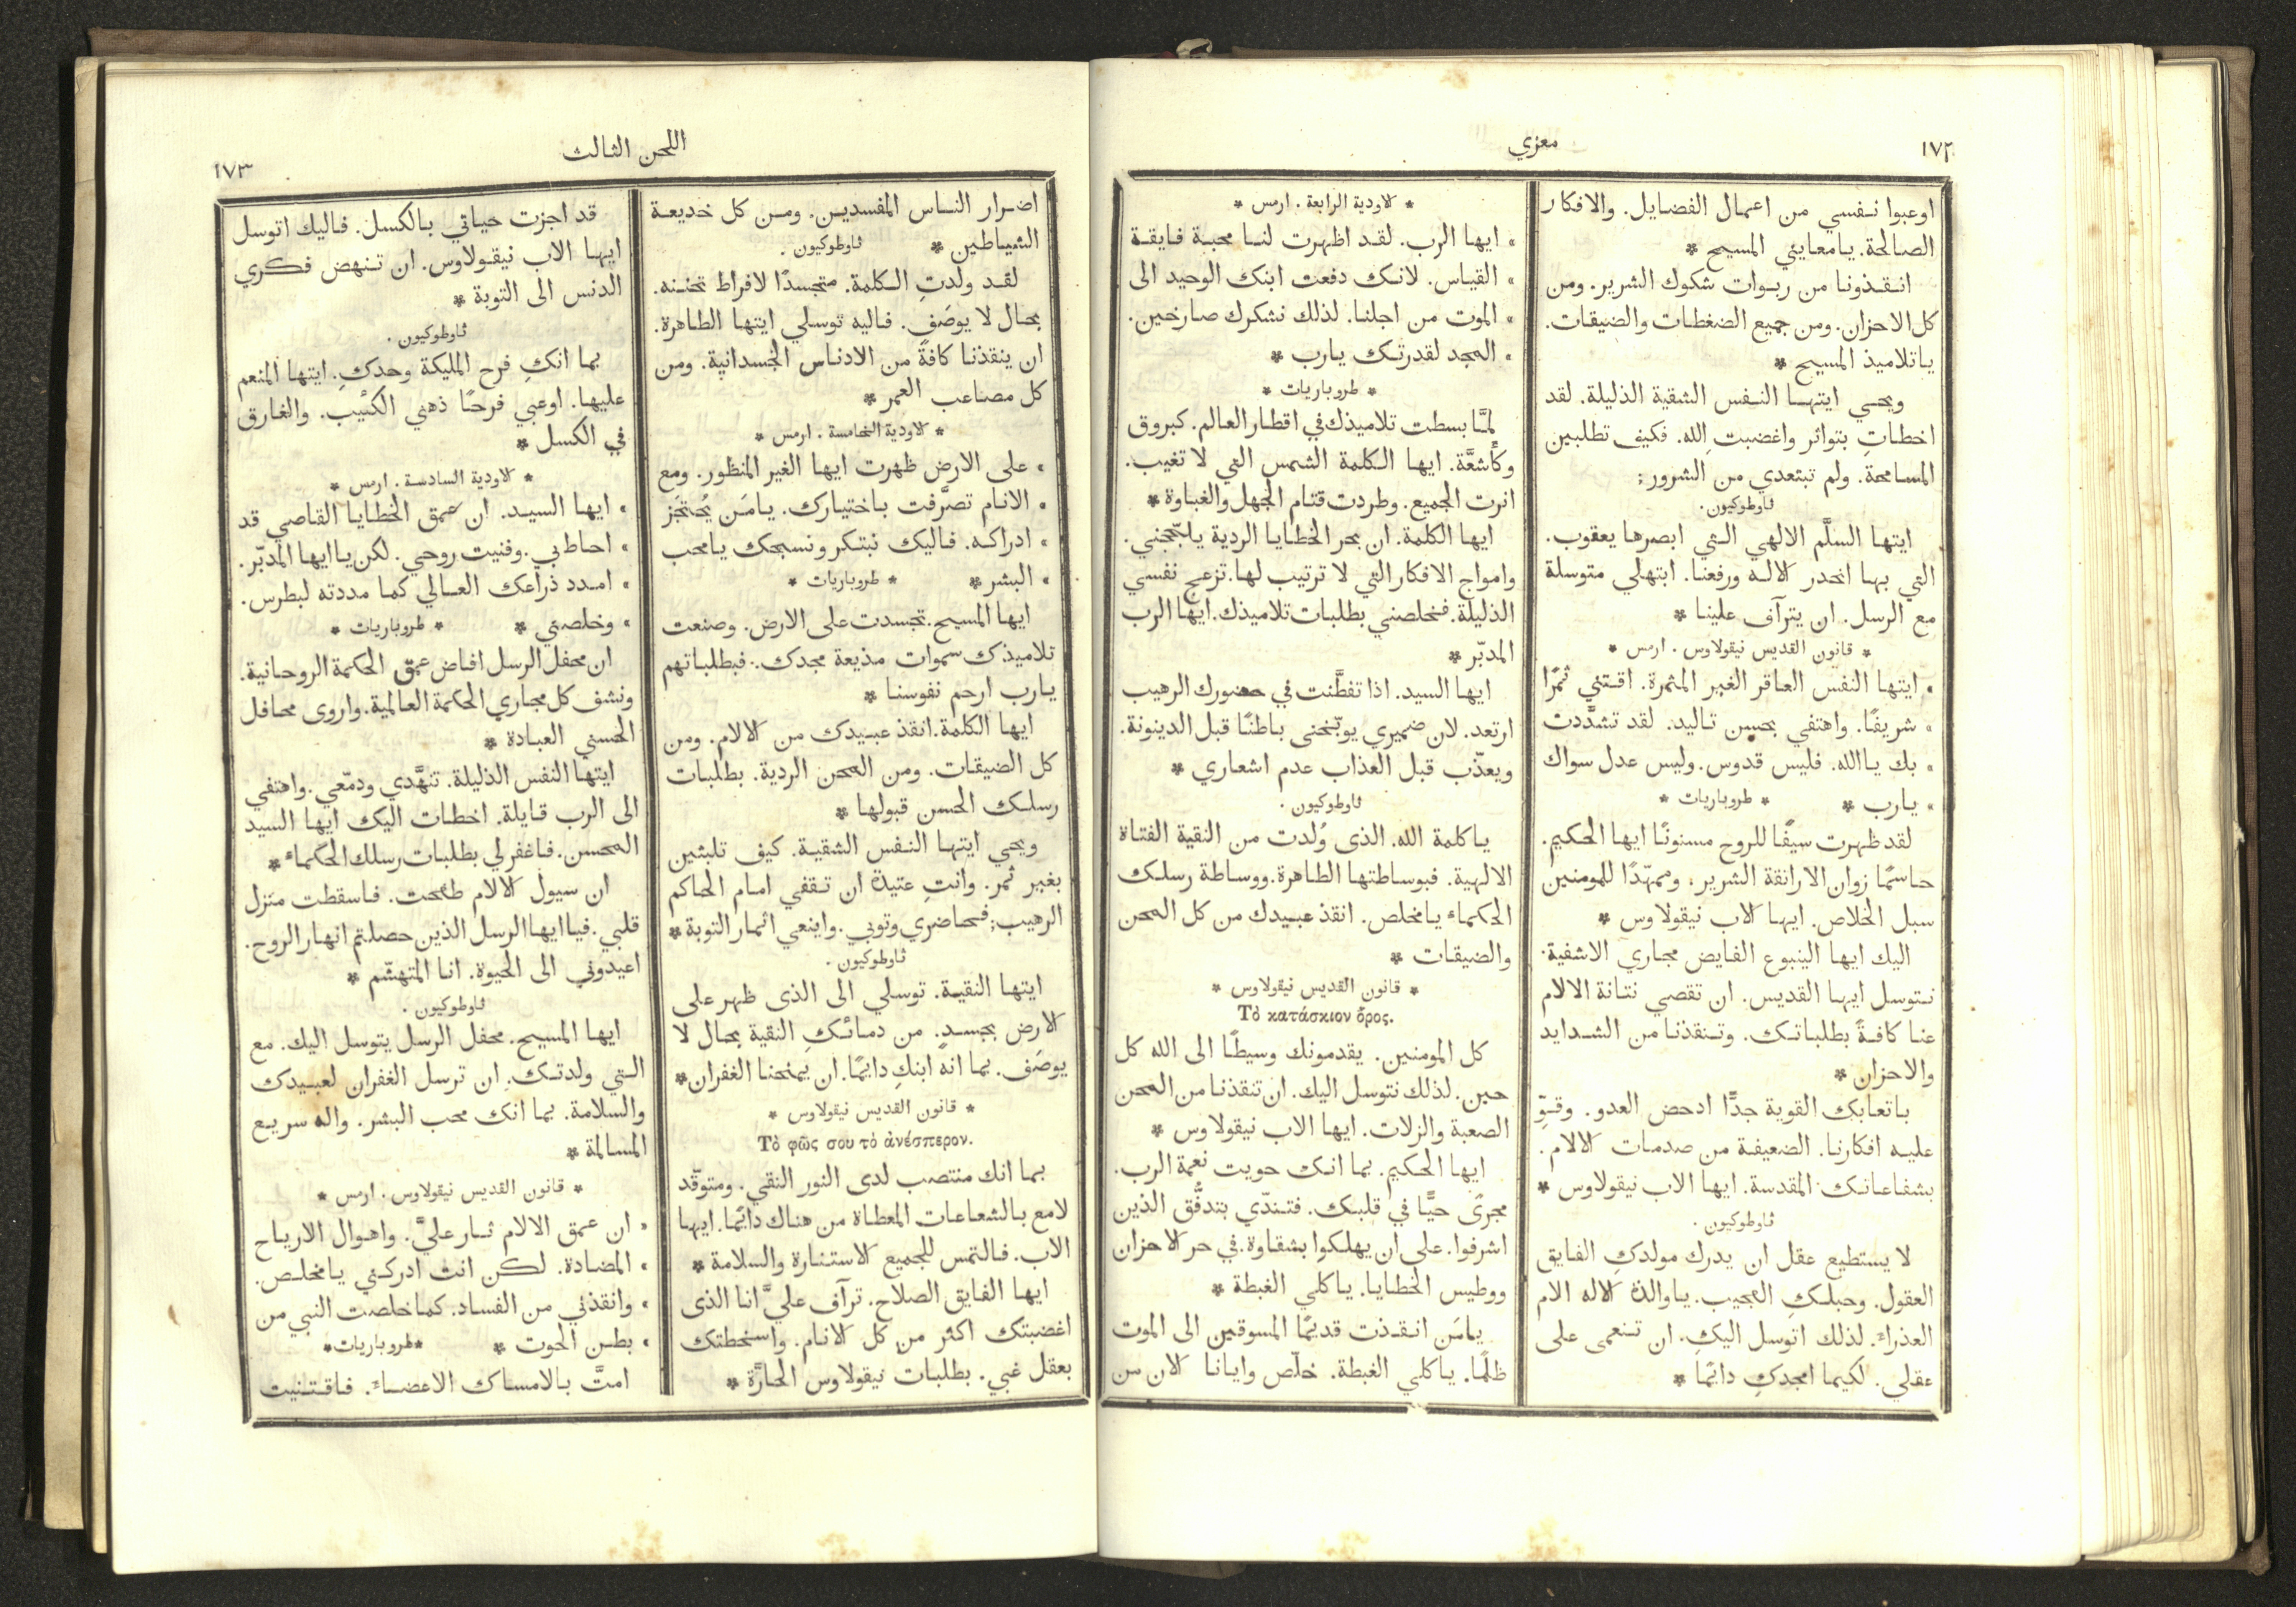 ١٧٢
معزي
اوعبوا نفسي من اعمال الفضايل. والافكار
الصالحة. يامعايني المسيح *
انقذونا من ربوات شكوك الشرير. ومن
كل الاحزان. ومن جميع الضغطات والضيقات.
ياتلاميذ المسيح *
ويحي ايتها النفس الشقية الذليلة. لقد
اخطاتِ بتواتر واغضبتِ الله. فكيف تطلبين
المسامحة. ولم تبتعدي من الشرور;
ثاوطوكيون.
ايتها السلَّم الالهي التي ابصرها يعقوب.
التي بها انحدر الاله ورفعنا. ابتهلي متوسلة
مع الرسل. ان يترآف علينا *
* قانون القديس نيقولاوس . ارمس *
» ايتها النفس العاقر الغير المثمرة. اقتني ثمرًا
» شريفًا. واهتفي بحسن تاليد. لقد تشدَّدت
» بك ياالله. فليس قدوس. وليس عدل سواك
» يارب * * طروباريات *
لقد ظهرت سيفًا للروح مسنونًا ايها الحكيم.
حاسمًا زوان الاراتقة الشرير، وممهّدًا للمومنين
سبل الخلاص. ايها الاب نيقولاوس *
اليك ايها الينبوع الفايض مجاري الاشفية.
نتوسل ايها القديس. ان تقصي نتانة الالام
عنا كافةً بطلباتك. وتنقذنا من الشدايد
والاحزان *
باتعابك القوية جدًّا ادحض العدو. وقوِّ
عليه افكارنا. الضعيفة من صدمات الالام.
بشفاعاتك المقدسة. ايها الاب نيقولاوس *
ثاوطوكيون.
لا يستطيع عقل ان يدرك مولدكِ الفايق
العقول. وحبلكِ العجيب. ياوالدة الاله الام
العذراء. لذلك اتوسل اليكِ. ان تنعمى على
عقلي. لكيما امجدكِ دائمًا *
* الاودية الرابعة . ارمس *
» ايها الرب. لقد اظهرت لنا محبة فايقة
» القياس. لانك دفعت ابنك الوحيد الى
» الموت من اجلنا. لذلك نشكرك صارخين.
» المجد لقدرتك يارب *
* طروباريات *
لمَّا بسطت تلاميذك في اقطار العالم. كبروق
وكأشعَّة. ايها الكلمة الشمس التي لا تغيب.
انرت الجميع. وطردت قتام الجهل والغباوة *
ايها الكلمة. ان بحر الخطايا الردية يلجّجني.
وامواج الافكار التي لا ترتيب لها. تزعج نفسي
الذليلة. فخلصني بطلبات تلاميذك. ايها الرب
المدبّر *
ايها السيد. اذا تفطَّنت في حضورك الرهيب
ارتعد. لان ضميري يوبّخنى باطنًا قبل الدينونة.
ويعذّب قبل العذاب عدم اشعاري *
ثاوطوكيون.
ياكلمة الله. الذى وُلدت من النقية الفتاة
الالهية. فبوساطتها الطاهرة. ووساطة رسلك
الحكماء يامخلص. انقذ عبيدك من كل المحن
والضيقات *
* قانون القديس نيقولاوس *
Τὸ κατάσκιον ὄρος.
كل المومنين. يقدمونك وسيطًا الى الله كل
حين. لذلك نتوسل اليك. ان تنقذنا من المحن
الصعبة والزلات. ايها الاب نيقولاوس *
ايها الحكيم. بما انك حويت نعمة الرب.
مجرًى حيًّا في قلبك. فتندّي بتدفُّق الذين
اشرفوا. على ان يهلكوا بشقاوة. في حر الاحزان
ووطيس الخطايا. ياكلي الغبطة *
يامَن انقذت قديمًا المسوقين الى الموت
ظلمًا. ياكلي الغبطة. خلّص وايانا الان من
اللحن الثالث
١٧٣
اضرار الناس المفسدين. ومن كل خديعة
الشياطين * ثاوطوكيون.
لقد ولدتِ الكلمة. متجسدًا لافراط تحننه.
بحال لا يوصَف. فاليه توسلي ايتها الطاهرة.
ان ينقذنا كافةً من الادناس الجسدانية. ومن
كل مصاعب العمر *
* الاودية الخامسة . ارمس *
» على الارض ظهرت ايها الغير المنظور. ومع
» الانام تصرَّفت باختيارك. يامَن يُحتَجَز
» ادراكه. فاليك نبتكر ونسبحك يامحب
» البشر * * طروباريات *
ايها المسيح. تجسدت على الارض. وصنعت
تلاميذك سموات مذيعة مجدك. فبطلباتهم
يارب ارحم نفوسنا *
ايها الكلمة. انقذ عبيدك من الالام. ومن
كل الضيقات. ومن المحن الردية. بطلبات
رسلك الحسن قبولها *
ويحي ايتها النفس الشقية. كيف تلبثين
بغير ثمر. وانتِ عتيدة ان تقفي امام الحاكم
الرهيب; فحاضري وتوبي. واينعي اثمار التوبة *
ثاوطوكيون.
ايتها النقية. توسلي الى الذى ظهر على
الارض بجسدٍ. من دمائكِ النقية بحال لا
يوصَف. بما انه ابنكِ دايمًا. ان يمنحنا الغفران *
* قانون القديس نيقولاوس *
Τὸ φῶς σου τὸ ἀνέσπερον.
بما انك منتصب لدى النور النقي. ومتوقّد
لامع بالشعاعات المعطاة من هناك دائمًا. ايها
الاب. فالتمس للجميع الاستنارة والسلامة *
ايها الفايق الصلاح. ترآف عليَّ انا الذى
اغضبتك اكثر من كل الانام. واسخطتك
بعقل غبي. بطلبات نيقولاوس الحارَّة *
قد اجزت حياتي بالكسل. فاليك اتوسل
ايها الاب نيقولاوس. ان تنهض فكري
الدنس الى التوبة *
ثاوطوكيون.
بما انكِ فرح المليكة وحدكِ. ايتها المنعم
عليها. اوعبي فرحًا ذهني الكئيب. والغارق
في الكسل *
* الاودية السادسة . ارمس *
» ايها السيد. ان عمق الخطايا القاصي قد
» احاط بي. وفنيت روحي. لكن ياايها المدبّر.
» امدد ذراعك العالي كما مددته لبطرس.
» وخلصني * * طروباريات *
ان محفل الرسل افاض عمق الحكمة الروحانية.
ونشف كل مجاري الحكمة العالمية. واروى محافل
الحسني العبادة *
ايتها النفس الذليلة. تنهَّدي ودمّعي. واهتفي
الى الرب قايلة. اخطات اليك ايها السيد
المحسن. فاغفر لي بطلبات رسلك الحكماء *
ان سيول الالام طمحت. فاسقطت منزل
قلبي. فياايها الرسل الذين حصلتم انهار الروح.
اعيدوني الى الحيوة. انا المتهشّم *
ثاوطوكيون.
ايها المسيح. محفل الرسل يتوسل اليك. مع
التي ولدتك. ان ترسل الغفران لعبيدك
والسلامة. بما انك محب البشر. واله سريع
المسالمة *
* قانون القديس نيقولاوس . ارمس *
» ان عمق الالام ثار عليَّ. واهوال الارياح
» المضادة. لكن انت ادركني يامخلص.
» وانقذني من الفساد. كما خلصت النبي من
» بطن الحوت * * طروباريات *
امتَّ بالامساك الاعضاء. فاقتنيت